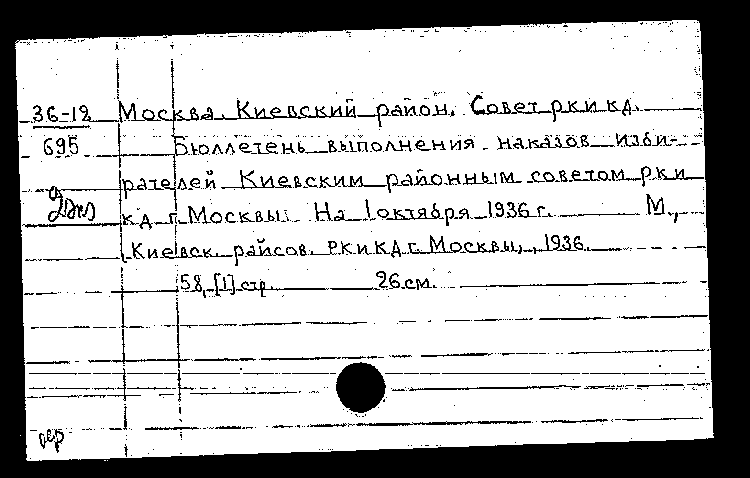 36-12 Москва. Киевский район. Совет рк и кд.
695 Бюллетень выполнения наказов изби-
рателей Киевским районным советом рк и
кд г. Москвы: На 1 октября 1936 г. М.,
, Киевск. райсов. РК и КД г. Москвы, , 1936.
58, [1] стр. 26 см.